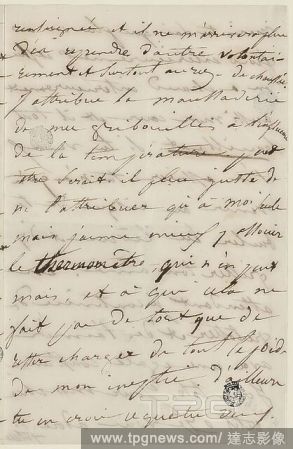 renseignée et il ne m'arrivera plus
d'en reprendre d'autre volontai-
rement et surtout au rez-de-chaussée.
J'attribue la maussaderie
de mes gribouillis à l'influence
de la température, peut
être serait-il plus juste de
ne l'attribuer qu'à moi seule
mais j'aime mieux y associer
le thermomètre, qui n'en peut
mais, et à qui cela ne
fait pas de tort que de
être chargé de tout le poids
de mon ineptie. D'ailleurs
tu en croiras ce que tu
TPG
www.tpgnews.com/ 達志影像